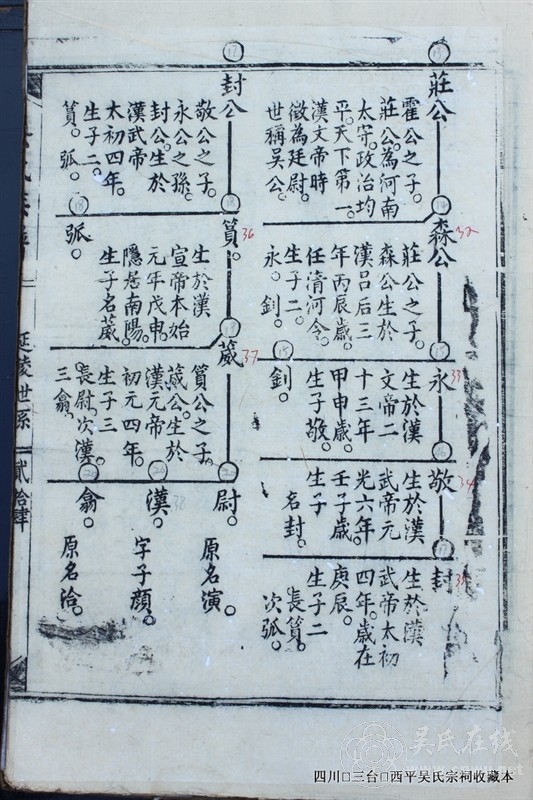 莊公
霍公之子。
莊公。為河南
太守。政治均
平。天下第一。
漢文帝時
徵為廷尉。
世稱吳公。
森公
莊公之子。
森公生於
漢呂后三
年丙辰歲。
任清河令。
生子二。
永。釗。
永
生於漢
文帝二
十三年
甲申歲。
生子敬。
釗。
敬
生於漢
武帝元
光六年。
壬子歲
生子
名封。
封
生於漢
武帝太初
四年。歲在
庚辰。
生子二
長篔。
次弧。
封公
敬公之子。
永公之孫。
封公。生於
漢武帝
太初四年。
生子二。
篔。弧。
篔。
生於漢
宣帝本始
元年戊申。
隱居南陽。
生子名葳
弧。
葳
篔公之子。
葳公。生於
漢元帝
初元四年。
生子三
長尉。次漢。
三翕。
尉。
原名演。
漢。
字子顏。
翕。
原名洽。
延陵世系
貳拾肆
17
18
32
33
34
35
36
37
38
吴氏在线
四川□三台□西平吴氏宗祠收藏本